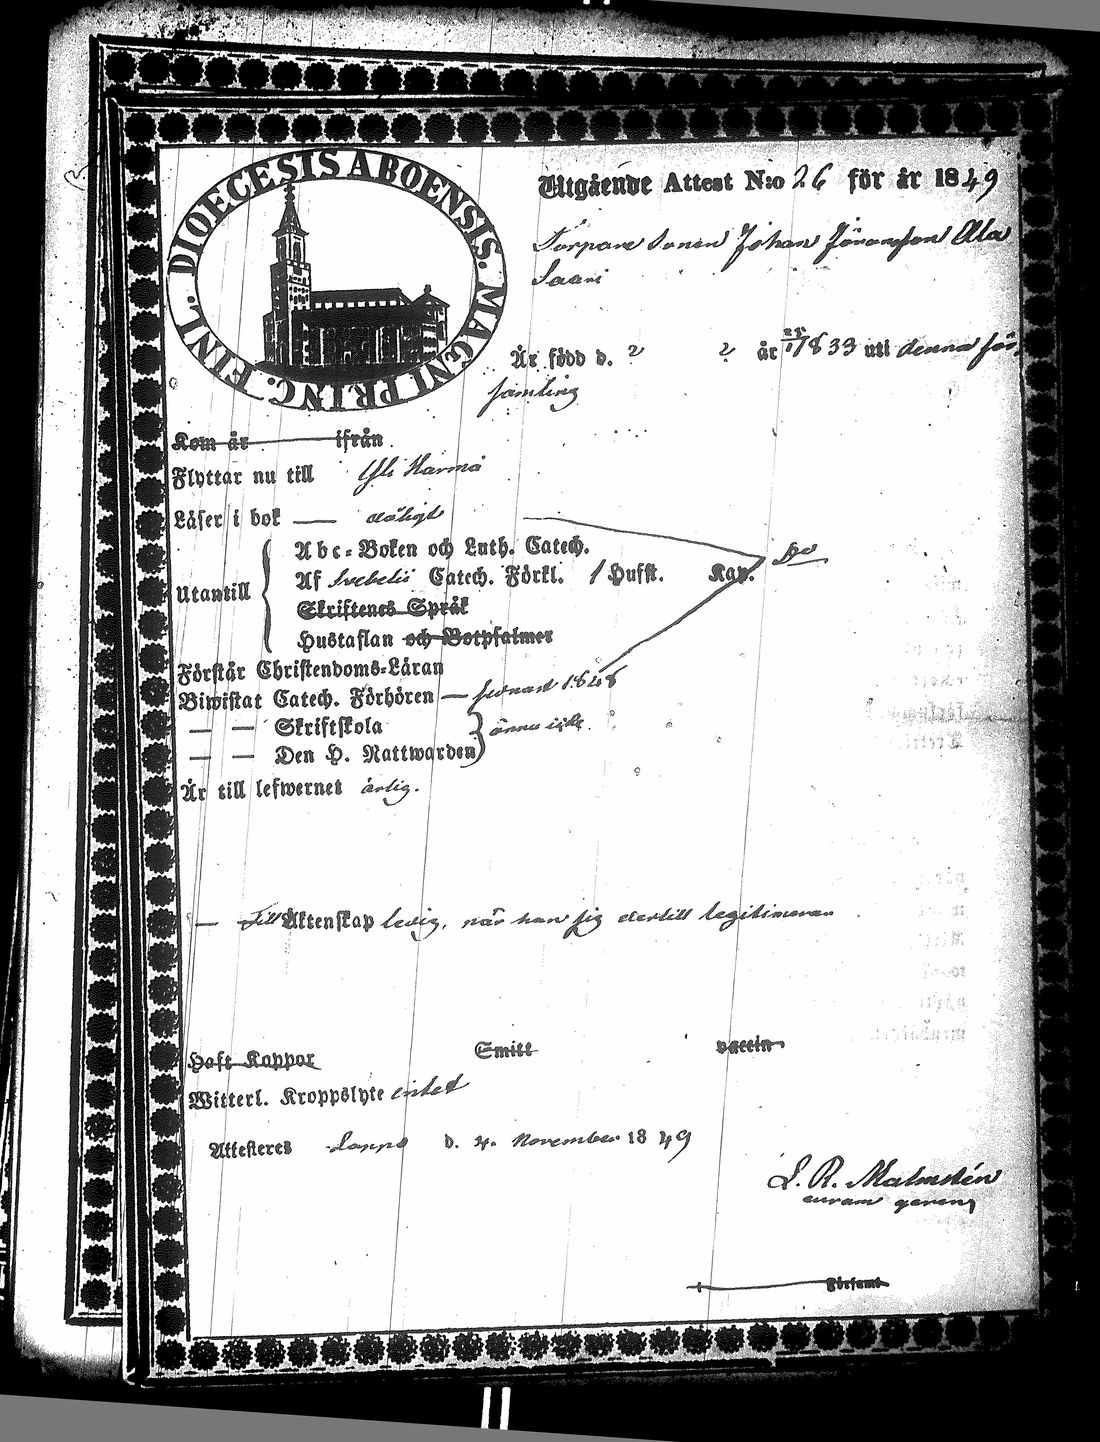 DIOECESIS ABOENSIS. MAGNI PRINC. FINL.
Utgående Attest N:o 26 för år 1849
Torpare Sonen Johan Jöransson Ala
Saari
Är född d. år 1833 uti denna för
samling
Kom år ifrån
Flyttar nu till Yli Härmä
Läser i bok — dåligt
Utantill
Abc-Boken och Luth. Catech.
Af Svebelii Catech. Förkl. 1 Hufst. Kap.
Skriftenes Språk
Hustaflan och Botpsalmer
Förstår Christendoms-Läran
Biwistat Catech. Förhören — senast 1848
— — Skriftskola
ännu icke.
— — Den H. Nattwarden
Är till lefwernet ärlig.
— Till Äktenskap ledig, när han sig dertill legitimerar
Haft Koppor Smitt vaccin
Witterl. Kroppslyte intet
Attesteres Lappo d. 4. November 1849
L. R. Malmstén
curam gerens
Församl.